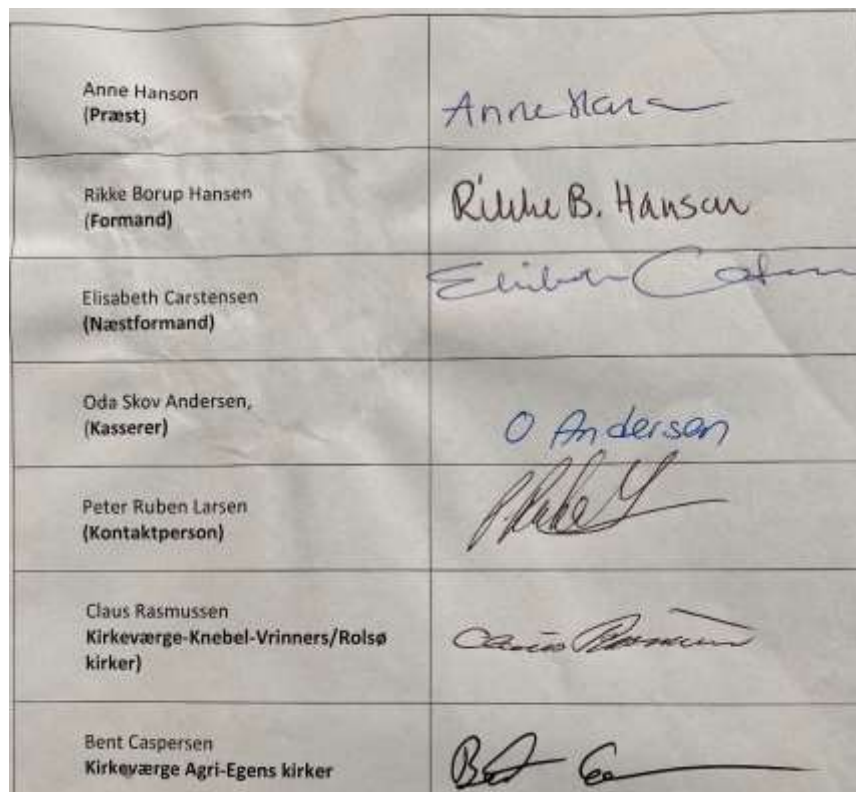 Anne Hanson
(Præst)
Anne Hans
Rikke Borup Hansen
(Formand)
Rikke B. Hansen
Elisabeth Carstensen
(Næstformand)
Oda Skov Andersen,
(Kasserer)
O Andersen
Peter Ruben Larsen
(Kontaktperson)
Claus Rasmussen
Kirkeværge-Knebel-Vrinners/Rolsø
kirker)
Claus Rasmussen
Bent Caspersen
Kirkeværge Agri-Egens kirker
Bent